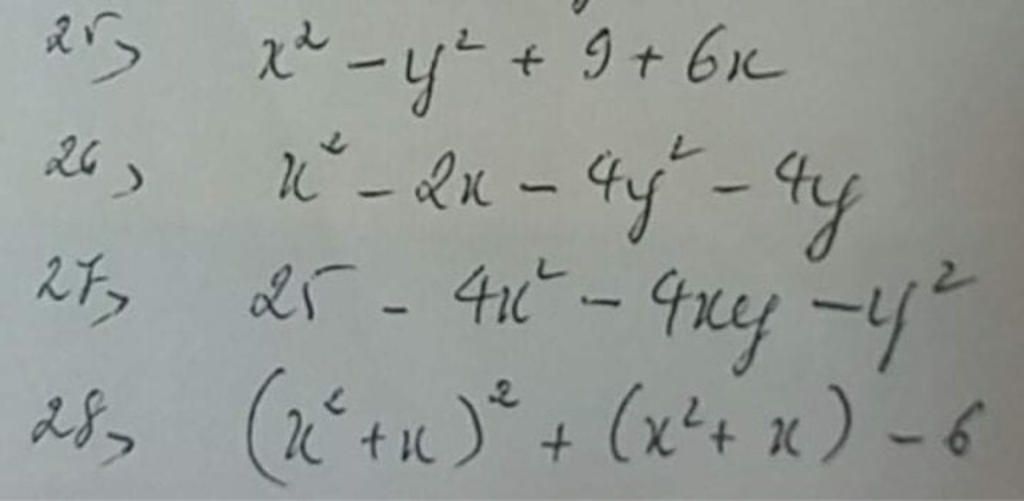 25, x² - y² + 9 + 6x
26, x² - 2x - 4y² - 4y
27, 25 - 4x² - 4xy - y²
28, (x² + x)² + (x² + x) - 6